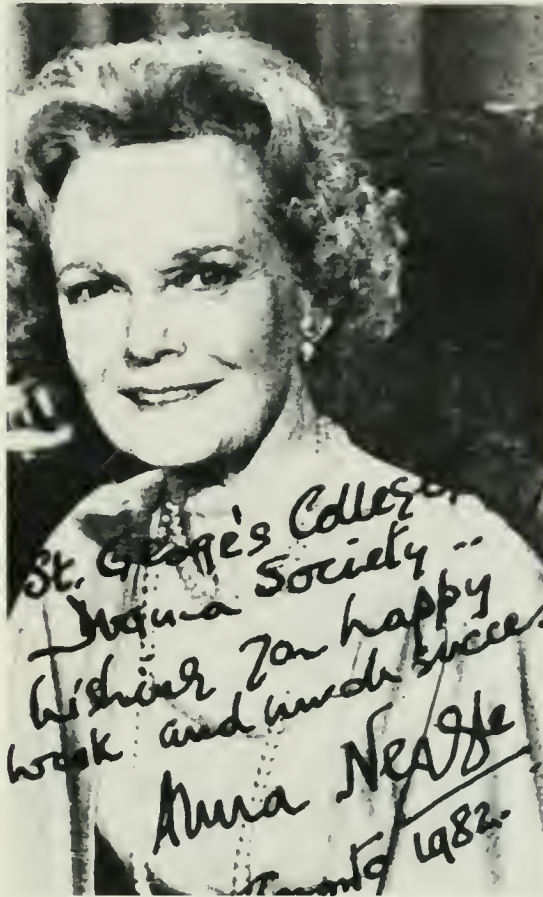 St. George's College
Drama Society --
Wishing you happy
work and much success
Anna Neagle
Toronto 1982.